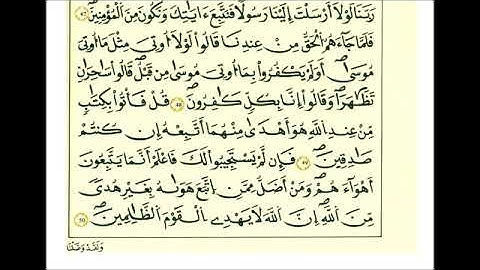 رَبَّنَا لَوْلَا أَرْسَلْتَ إِلَيْنَا رَسُولًا فَنَتَّبِعَ ءَايَٰتِكَ وَنَكُونَ مِنَ ٱلْمُؤْمِنِينَ ٤٧
فَلَمَّا جَآءَهُمُ ٱلْحَقُّ مِنْ عِندِنَا قَالُوا۟ لَوْلَآ أُوتِىَ مِثْلَ مَآ أُوتِىَ
مُوسَىٰٓ أَوَلَمْ يَكْفُرُوا۟ بِمَآ أُوتِىَ مُوسَىٰ مِن قَبْلُ قَالُوا۟ سَٰحِرَانِ
تَظَٰهَرَا وَقَالُوٓا۟ إِنَّا بِكُلٍّ كَٰفِرُونَ ٤٨ قُلْ فَأْتُوا۟ بِكِتَٰبٍ
مِّنْ عِندِ ٱللَّهِ هُوَ أَهْدَىٰ مِنْهُمَآ أَتَّبِعْهُ إِن كُنتُمْ
صَٰدِقِينَ ٤٩ فَإِن لَّمْ يَسْتَجِيبُوا۟ لَكَ فَٱعْلَمْ أَنَّمَا يَتَّبِعُونَ
أَهْوَآءَهُمْ وَمَنْ أَضَلُّ مِمَّنِ ٱتَّبَعَ هَوَىٰهُ بِغَيْرِ هُدًى
مِّنَ ٱللَّهِ إِنَّ ٱللَّهَ لَا يَهْدِى ٱلْقَوْمَ ٱلظَّٰلِمِينَ ٥٠
وَلَقَدْ وَصَّلْنَا